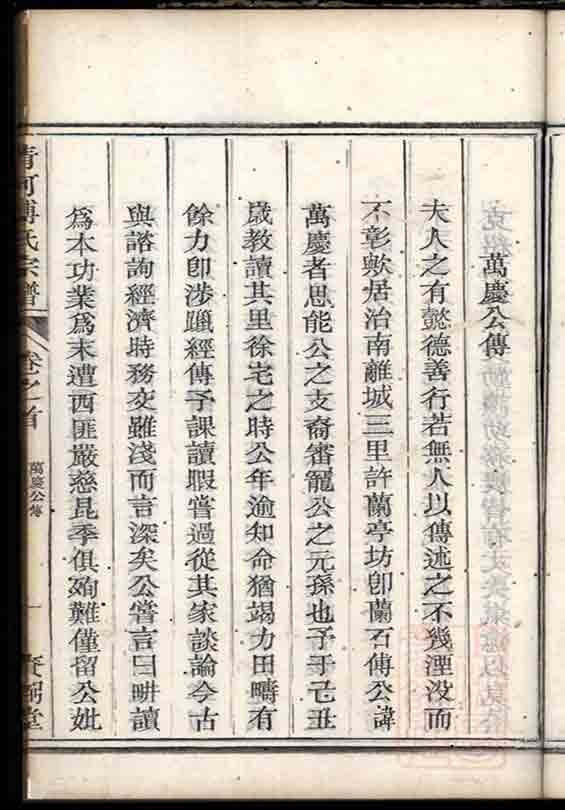 萬慶公傳
夫人之有懿德善行若無人以傳述之不幾湮没而
不彰歟居治南離城三里許蘭亭坊卽蘭石傅公諱
萬慶者思能公之支裔審寵公之元孫也予于己丑
歲教讀其里徐宅之時公年逾知命猶竭力田疇有
餘力卽涉躐經傳予課讀暇嘗過從其家談論今古
與諮詢經濟時務交雖淺而言深矣公嘗言曰耕讀
爲本功業爲末遭西匪嚴慈昆季俱殉難僅留公妣
清河傅氏宗譜
卷之首
萬慶公傳
一